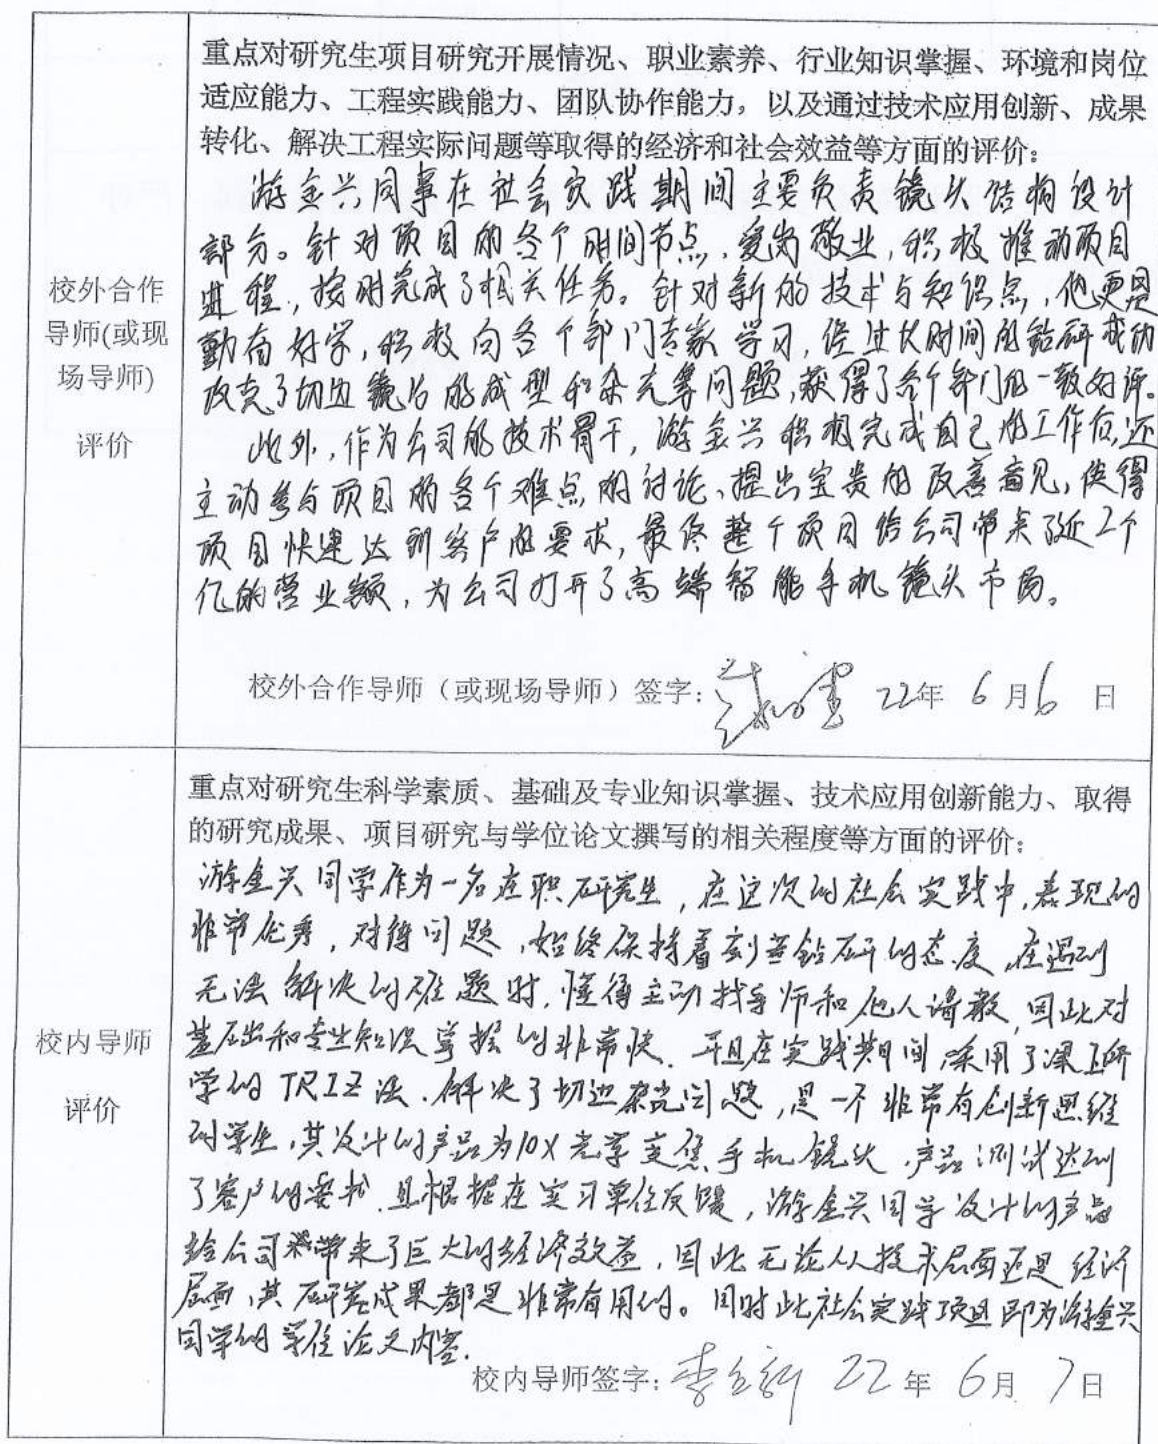 校外合作
导师(或现
场导师)
评价
重点对研究生项目研究开展情况、职业素养、行业知识掌握、环境和岗位
适应能力、工程实践能力、团队协作能力，以及通过技术应用创新、成果
转化、解决工程实际问题等取得的经济和社会效益等方面的评价：
游金兴同事在社会实践期间主要负责镜头结构设计
部分。针对项目的各个时间节点，爱岗敬业，积极推动项目
进程，按时完成了相关任务。针对新的技术与知识点，他更是
勤奋好学，积极向各个部门专家学习，经过长时间的钻研成功
攻克了切边镜片的成型和杂光等问题，获得了各个部门的一致好评。
此外，作为公司的技术骨干，游金兴积极完成自己的工作后，还
主动参与项目的各个难点的讨论、提出宝贵的改善意见，使得
项目快速达到客户的要求，最终整个项目给公司带来了近2个
亿的营业额，为公司打开了高端智能手机镜头市场。
校外合作导师（或现场导师）签字： 22年 6月6日
校内导师
评价
重点对研究生科学素质、基础及专业知识掌握、技术应用创新能力、取得
的研究成果、项目研究与学位论文撰写的相关程度等方面的评价：
游金兴同学作为一名在职研究生，在这次的社会实践中，表现的
非常优秀，对待问题，始终保持着刻苦钻研的态度，在遇到
无法解决的难题时，懂得主动找导师和他人请教，因此对
基础和专业知识掌握的非常快．并且在实践期间，采用了课上所
学的TRIZ法．解决了切边杂光问题，是一个非常有创新思维
的学生，其设计的产品为10X光学变焦手机镜头，产品测试达到
了客户的要求．且根据在实习单位反馈，游金兴同学设计的产品
给公司带来了巨大的经济效益，因此无论从技术层面还是经济
层面，其研究成果都是非常有用的。同时此社会实践项目即为游金兴
同学的学位论文内容．
校内导师签字：李立新 22年 6月 7日